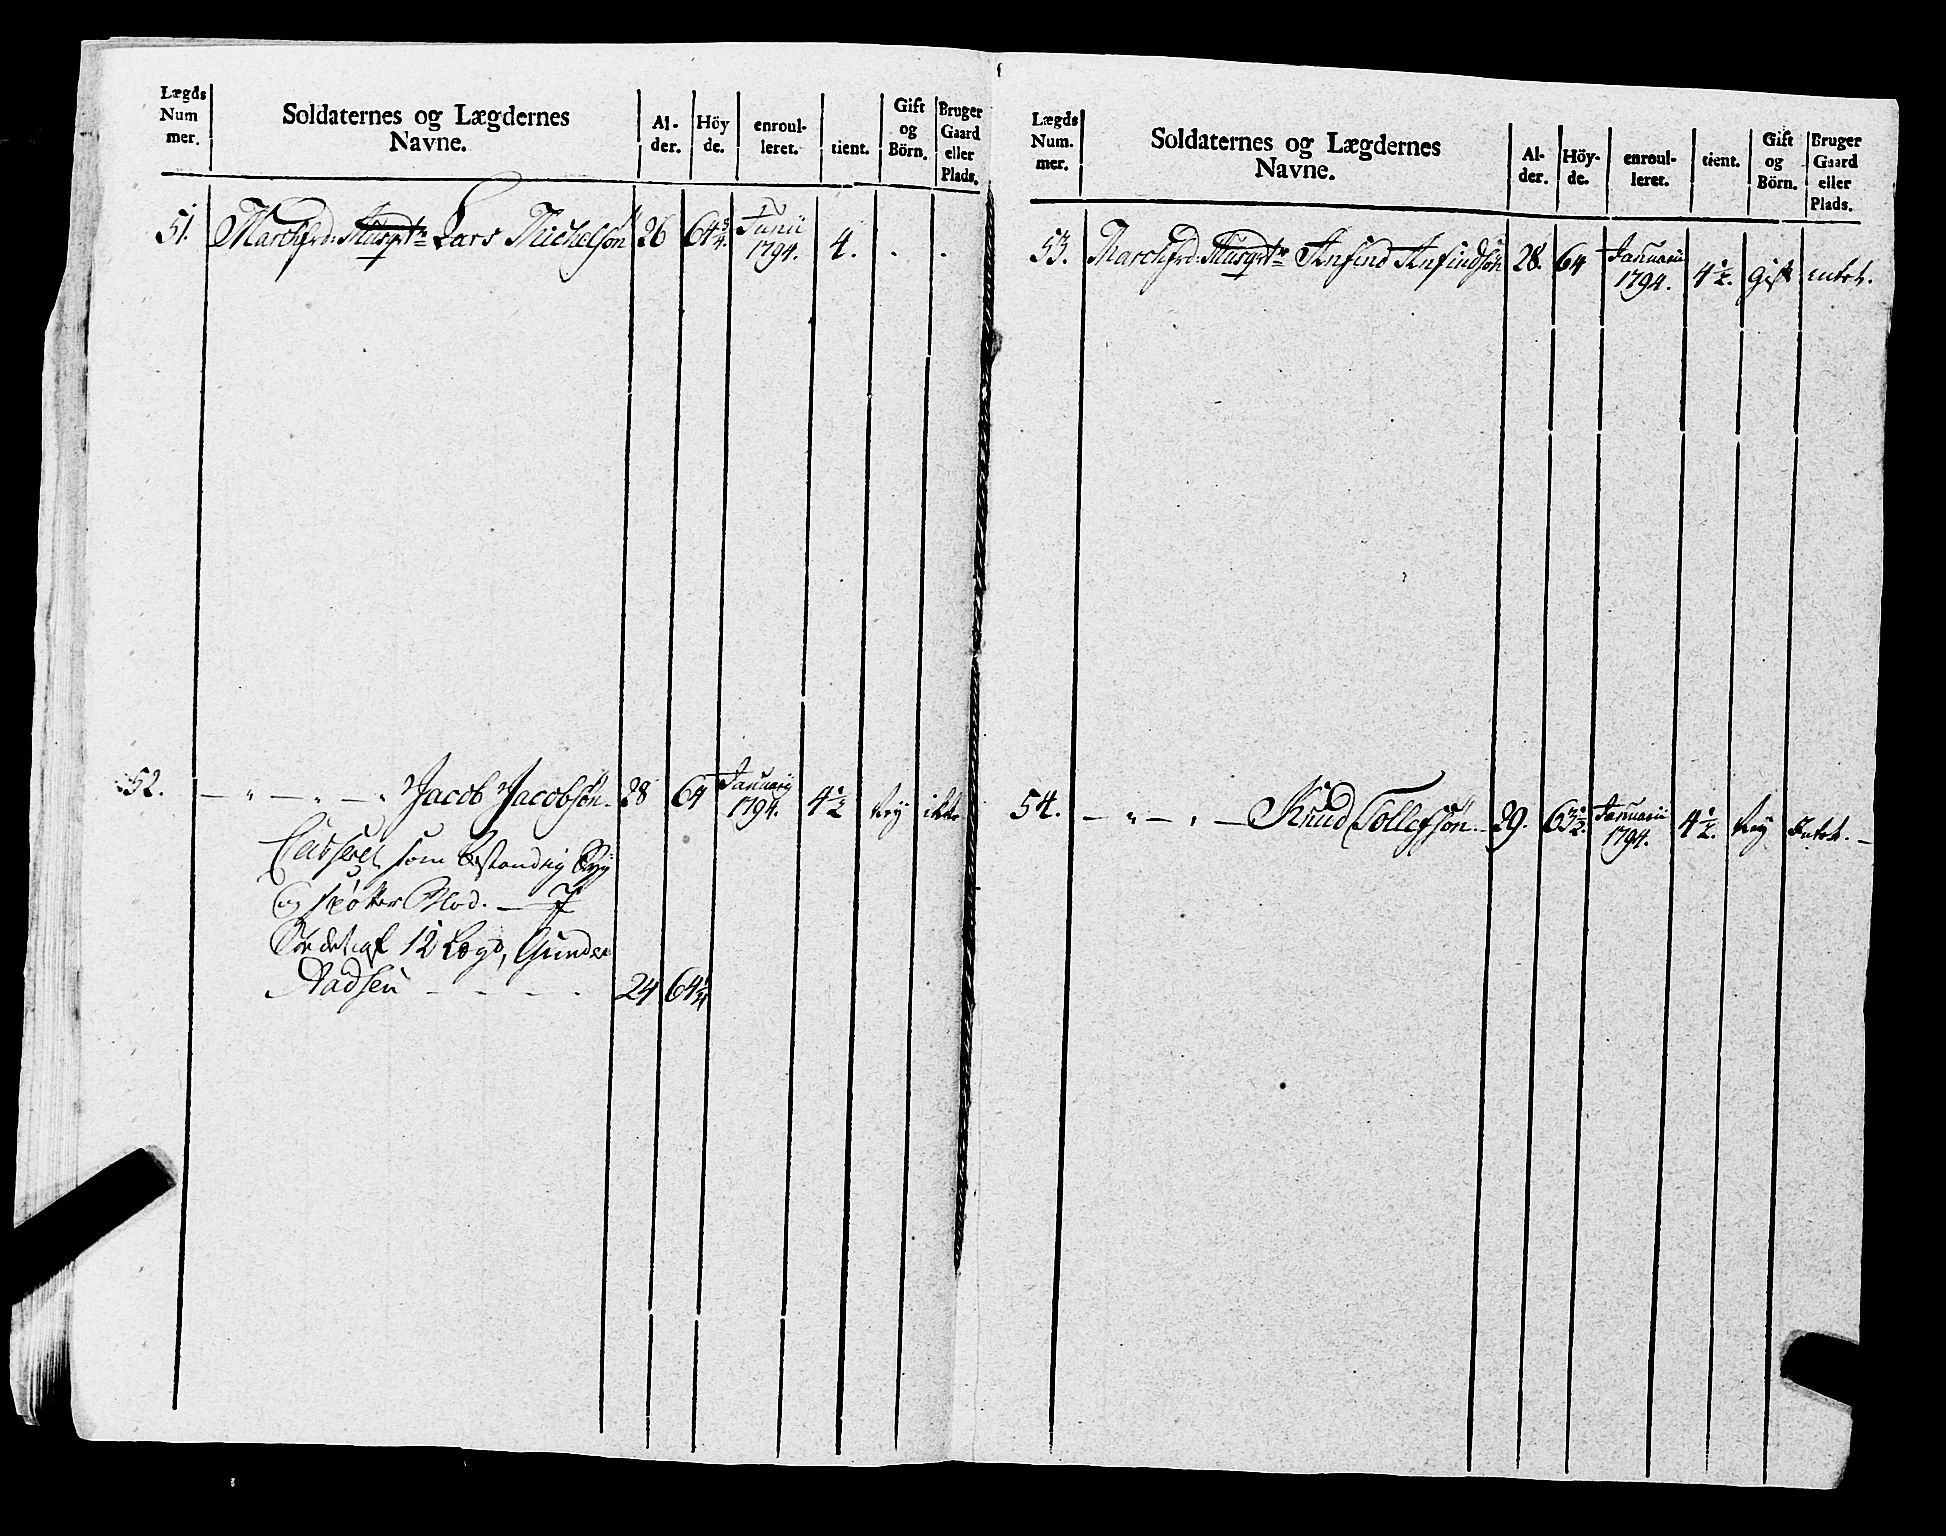 Lægds Num mer.
Soldaternes og Lægdernes Navne.
Al- der.
Höy de.
enroul- leret.
tient.
Gift og Börn.
Bruger Gaard eller Plads.
51. Marchfrd: Lars Michelsön 26 64 3/4. Junii 1794. 4. . .
52. — " — " — " Jacob Jacobsön. 28 64 Januarij 1794. 4 1/2 Ney ikke
Casseret som bestandig Syg
og Blod. —
12 Lægd, Gunder
Aadsen - - - - 24 64 1/4
Lægds Num. mer.
Soldaternes og Lægdernes Navne.
Al- der.
Höy- de.
enroul- leret.
tient.
Gift og Börn.
Bruger Gaard eller Plads.
53. Marchfrd: Anfind Anfindsön 28. 64 Januarii 1794. 4 1/2. Gift intet.
54. — " — " — Knud Tollefsön. 29. 63 1/2. Januarii 1794. 4 1/2. Ney Intet. —